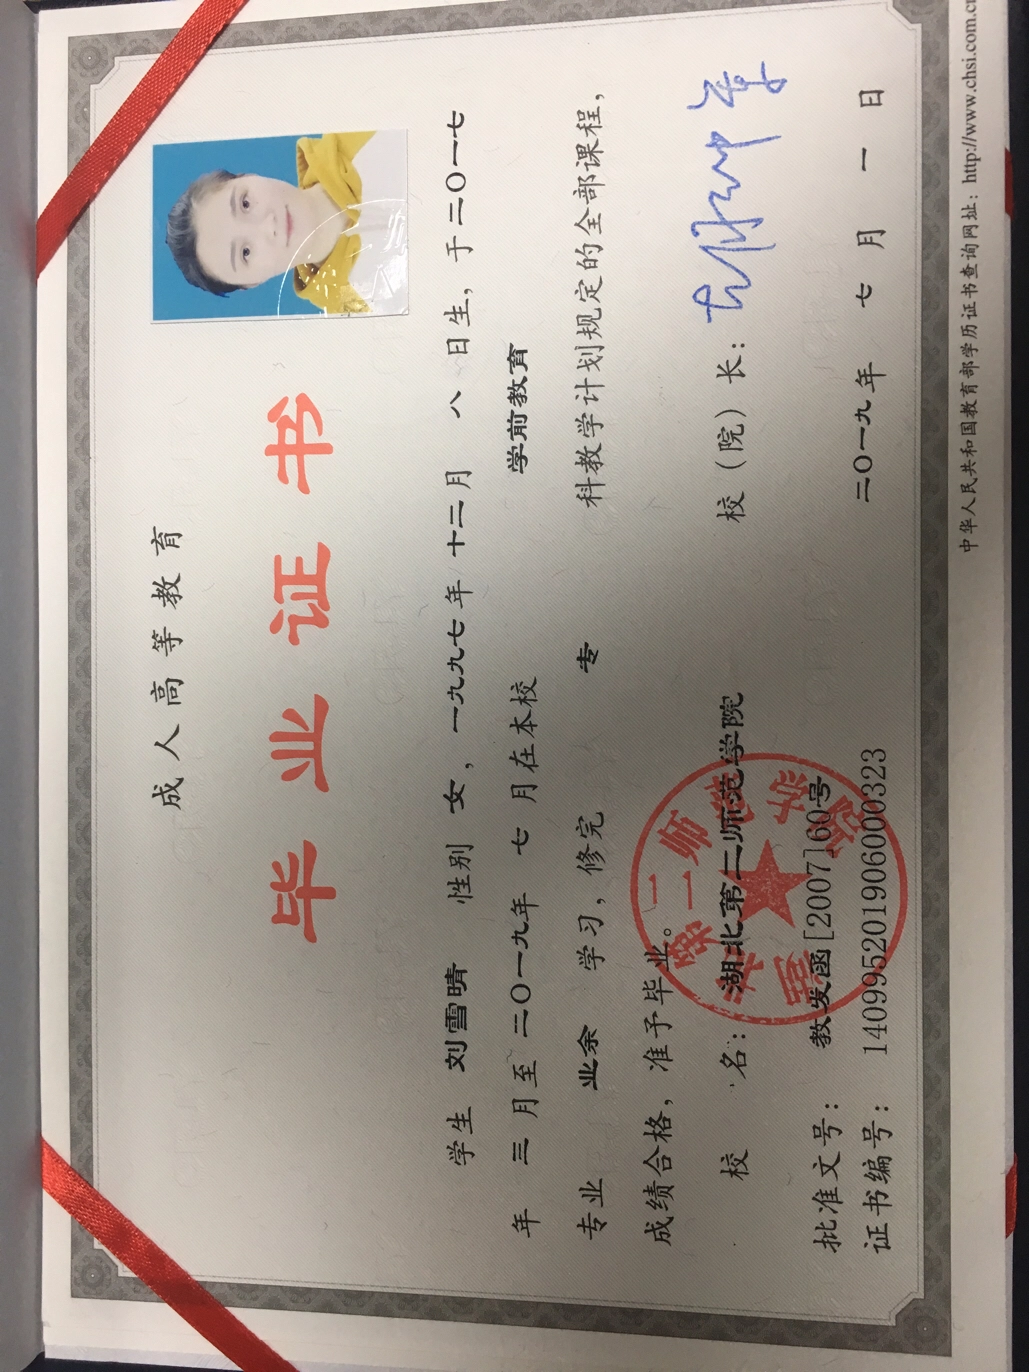 成人高等教育
毕业证书
学生 刘雪晴 性别 女，一九九七年 十二月 八 日生，于二〇一七
年 三 月至二〇一九年 七 月在本校 学前教育
专业 业余 学习，修完 专 科教学计划规定的全部课程，
成绩合格，准予毕业。
校 名：湖北第二师范学院 校（院）长：
批准文号：教发函[2007]60号
证书编号：140995201906000323 二〇一九年 七 月 一 日
中华人民共和国教育部学历证书查询网址：http://www.chsi.com.cn